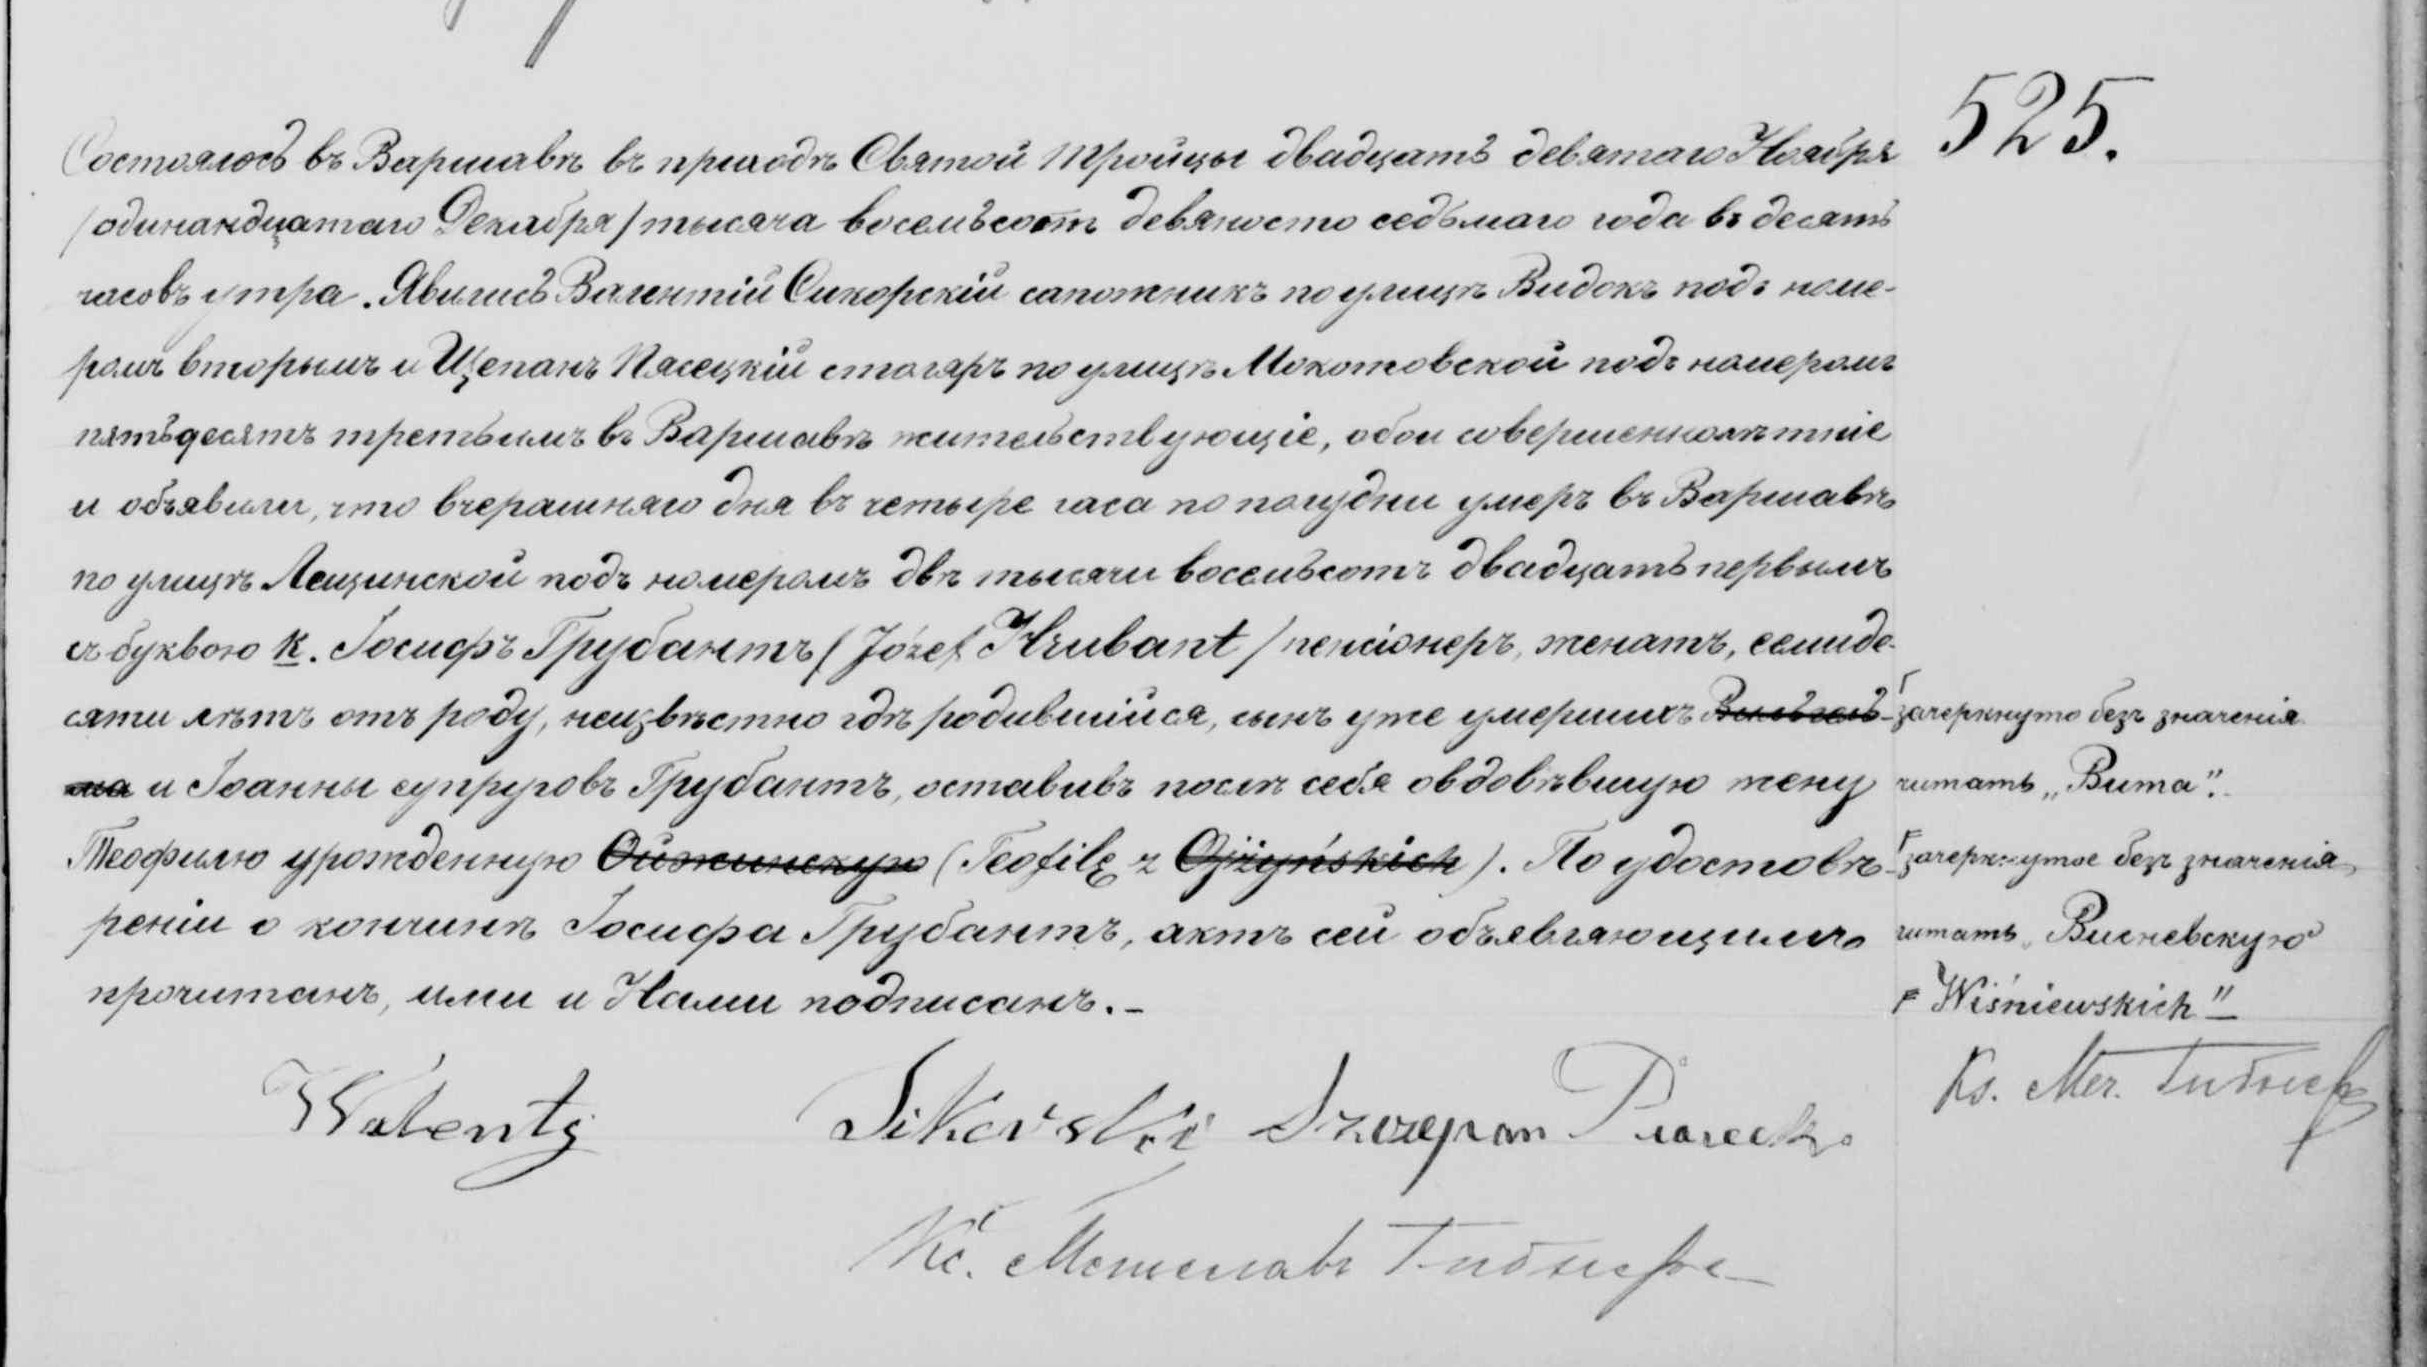 525.
Состоялось въ Варшавѣ въ приходѣ Святой Тройцы двадцать девятаго Ноября
/одинандцатаго Декабря/ тысяча восемьсотъ девяносто седьмаго года въ десять
часовъ утра. Явились Валентій Сикорскій сапожникъ по улицѣ Видокъ подъ номе-
ромъ вторымъ и Щепанъ Пясецкій столяръ по улицѣ Мокотовской подъ номеромъ
пятьдесятъ третьимъ въ Варшавѣ жительствующіе, обои совершеннолѣтніе
и объявили, что вчерашняго дня въ четыре часа по полудни умеръ въ Варшавѣ
по улицѣ Лещинской подъ номеромъ двѣ тысячи восемьсотъ двадцать первымъ
съ буквою К. Іосифъ Грубантъ (Józef Hrubant / пенсіонеръ, женатъ, семиде-
сяти лѣтъ отъ роду, неизвѣстно гдѣ родившійся, сынъ уже умершихъ Вильгель-
ма и Іоанны супруговъ Грубантъ, оставивъ послѣ себя овдовѣвшую жену
Теофилю урожденную Ойжинскую (Teofilę z Ojżyńskich). По удостовѣ-
реніи о кончинѣ Іосифа Грубантъ, актъ сей объявляющимъ
прочитанъ, ими и Нами подписанъ.-
зачеркнуто безъ значенія
читать „Вита".
зачеркнутое безъ значенія
читать „Висневскую
Wiśniewskich"
Ks. Mer.
Walenty Sikorski Szczepan Piasecki
Кс. Мстиславъ